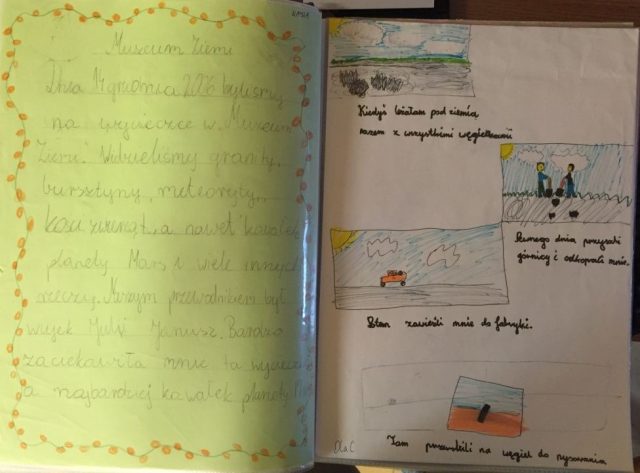 KASIA
Muzeum Ziemi
Dnia 14 grudnia 2006 byliśmy
na wycieczce w Muzeum
Ziemi. Widzieliśmy granity,
bursztyny, meteoryty,
kości zwierząt, a nawet kawałek
planety Mars i wiele innych
rzeczy. Naszym przewodnikiem był
wujek Julii Janusz. Bardzo
zaciekawiła mnie ta wyciecz
a najbardziej kawałek planety
Kiedyś leżałam pod ziemią
razem z wszystkimi węgielkami
Pewnego dnia przyszli
górnicy i odkopali mnie.
Potem zawieźli mnie do fabryki.
Ola C
Tam przerobili na węgiel do rysowania